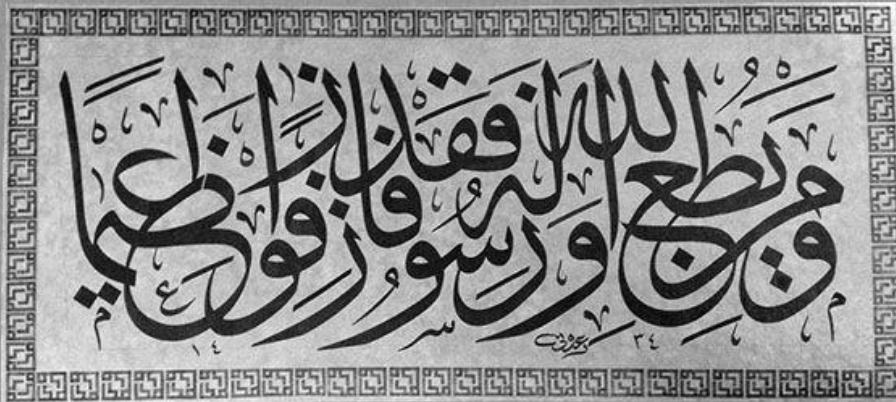 وَمَنْ يُطِعِ اللهَ وَرَسُولَهُ فَقَدْ فَازَ فَوْزًا عَظِيمًا
١٤٣٤